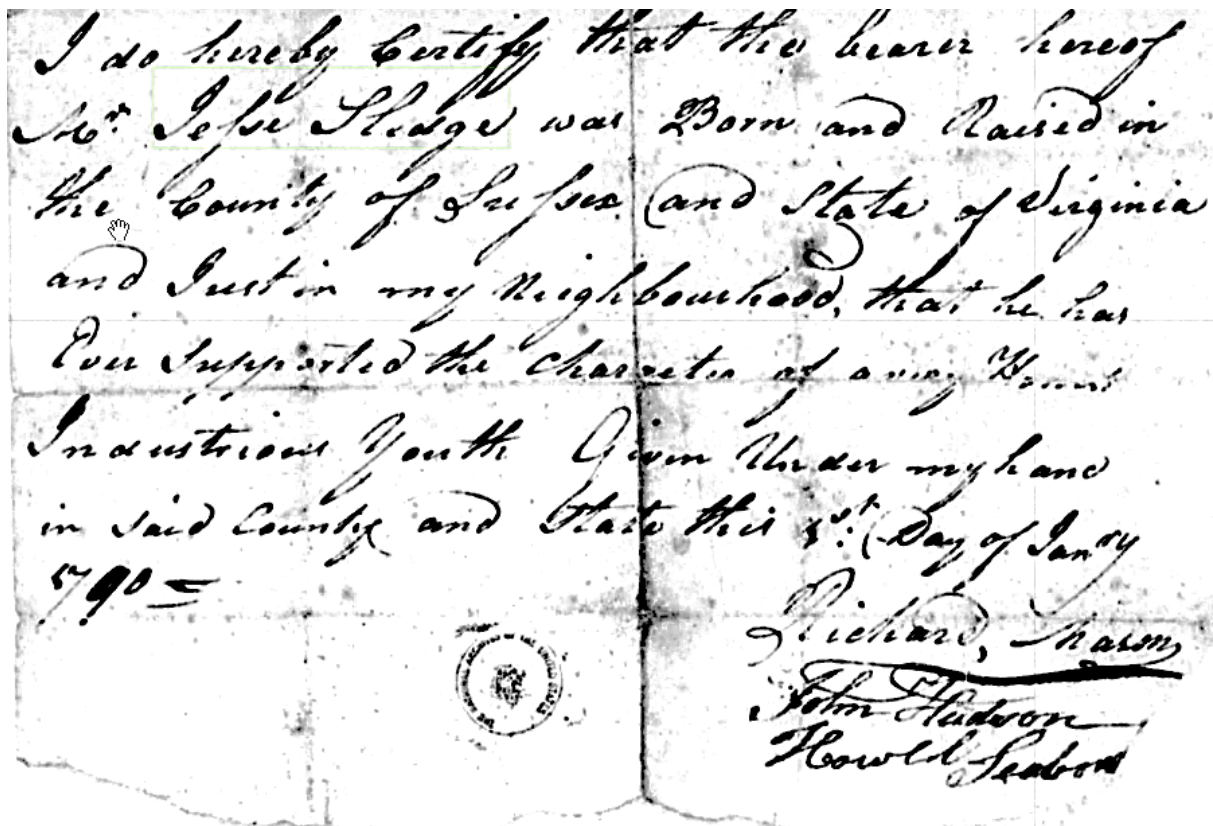 I do hereby Certify that the bearer hereof
Mr. Jesse Sledge was Born and Raised in
the County of Sussex and State of Virginia
and Just in my Neighbourhood, that he has
Ever Supported the Character of a very Honest
Industrious Youth Given Under my hand
in said County and State this 1st. Day of Janry
1790 =
Richard, Mason
John Hudson
Howell Seaborn